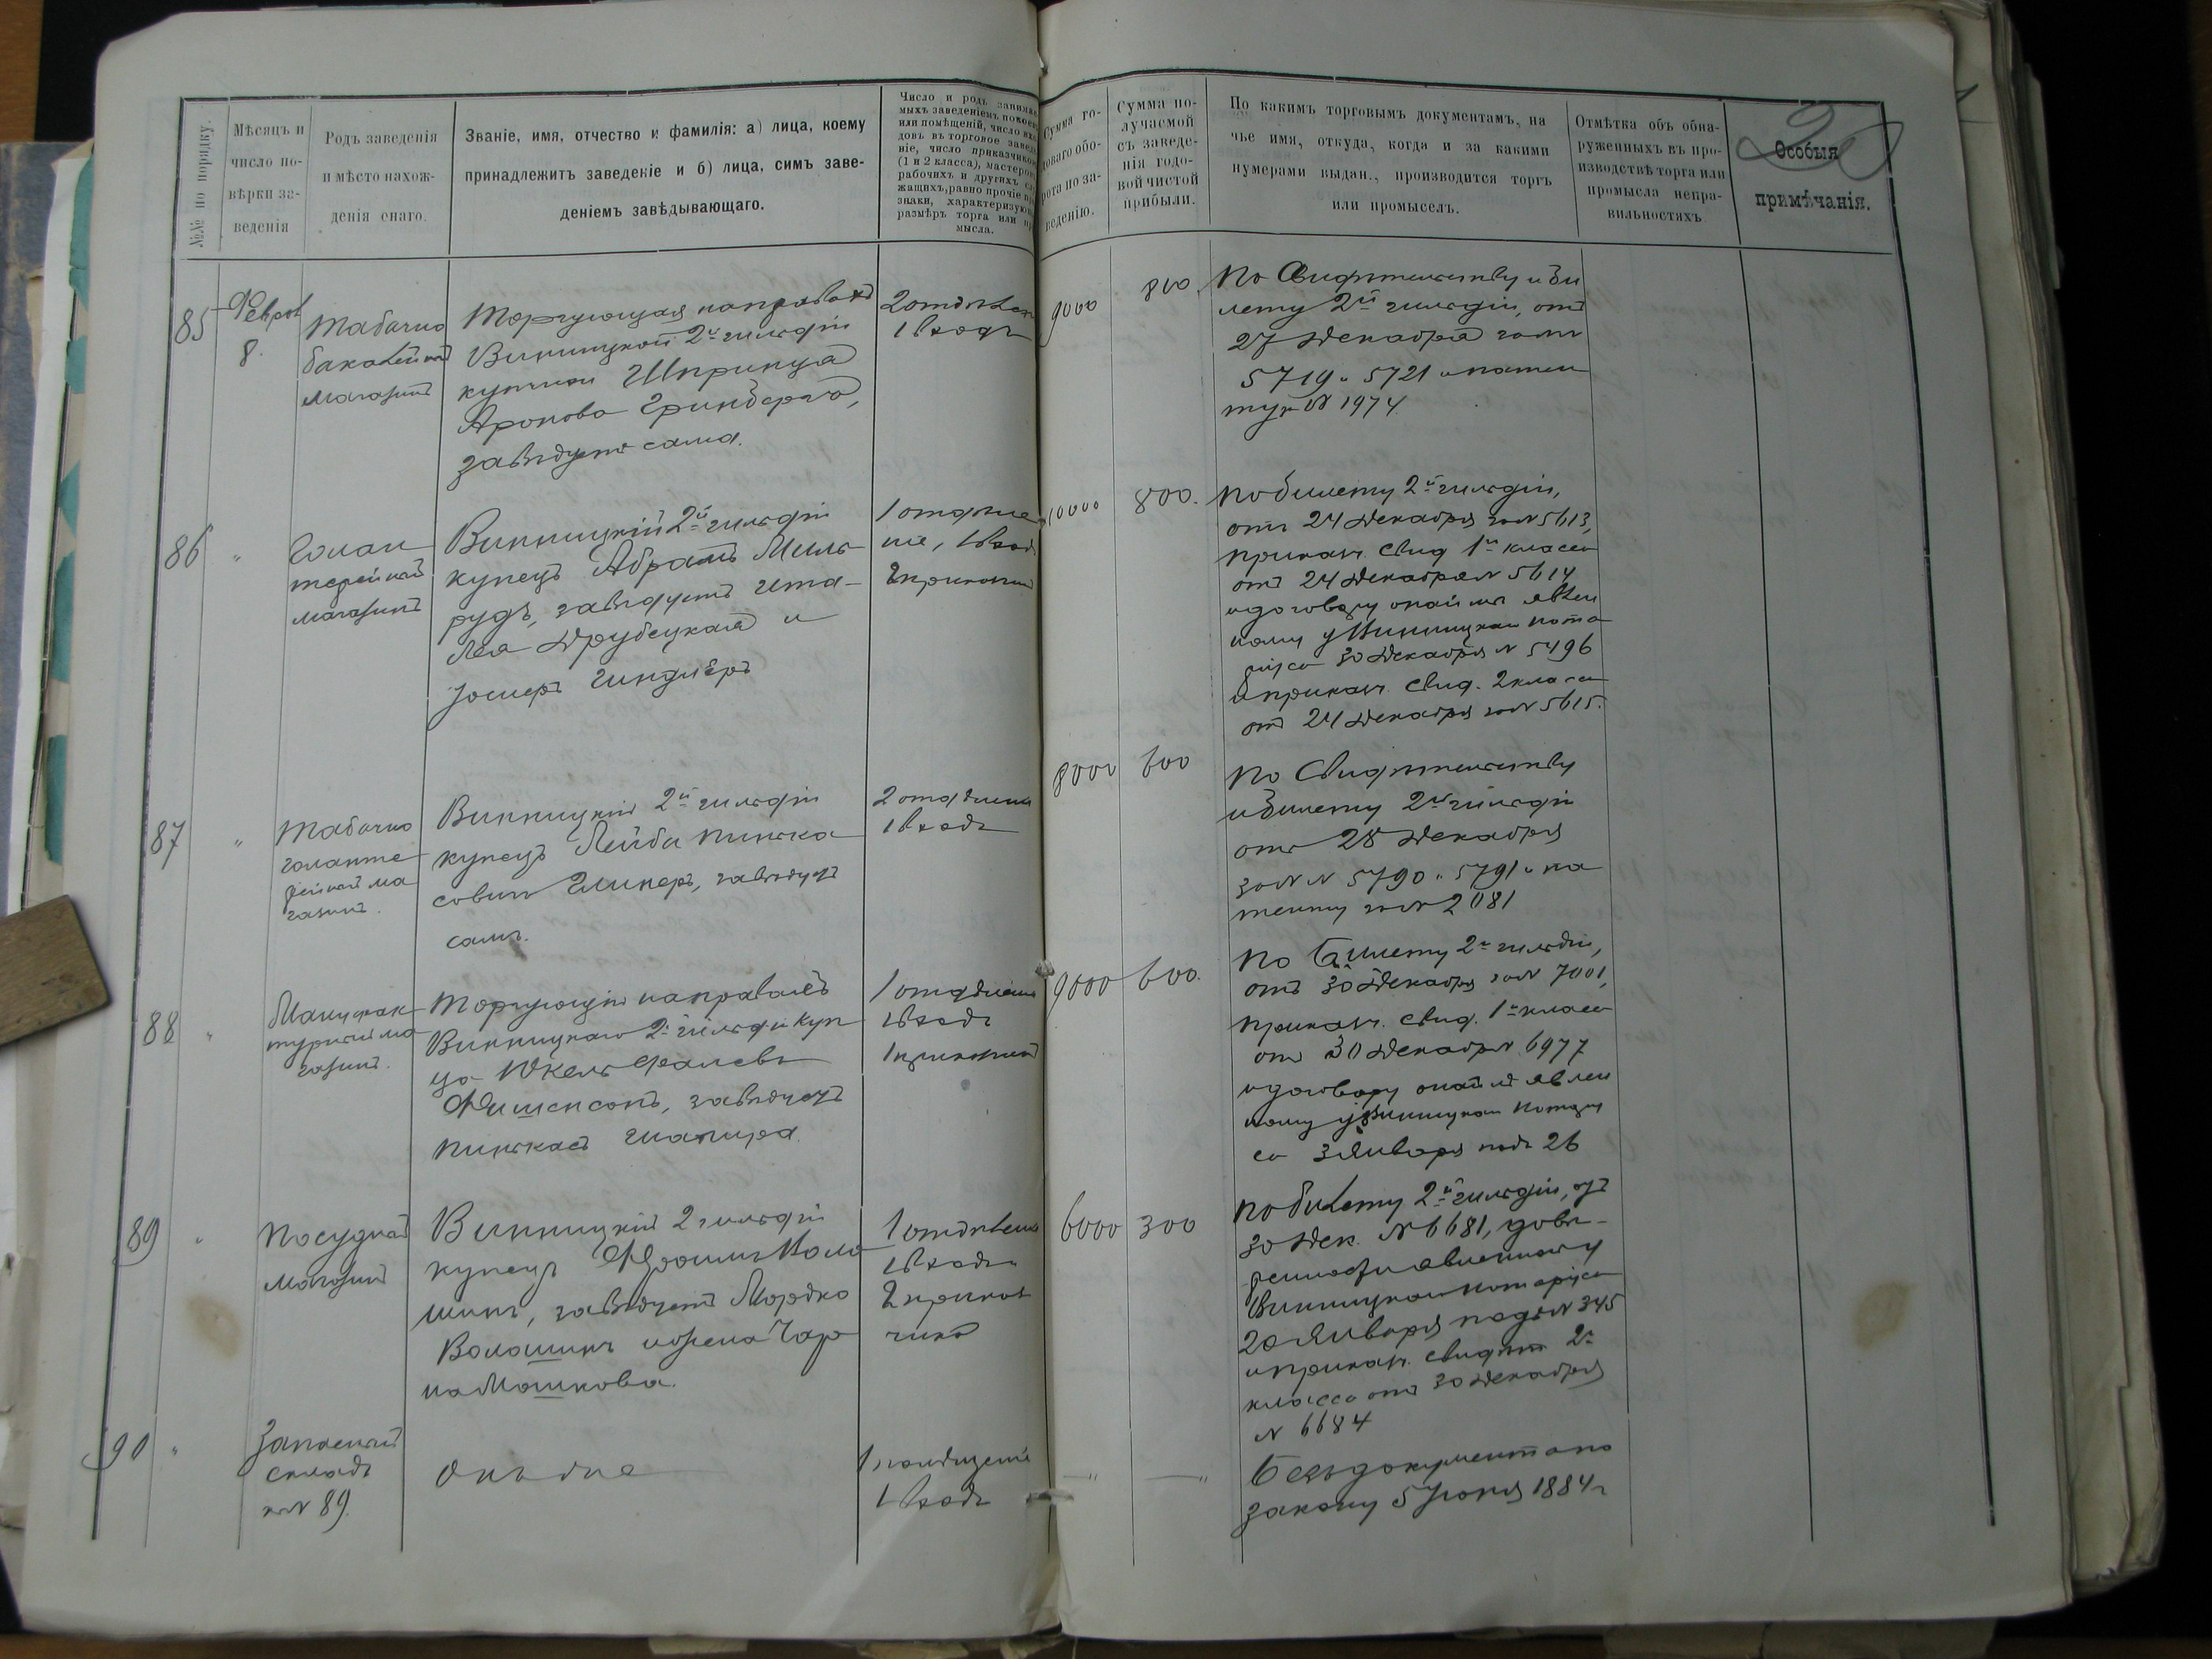 №№ по порядку.
Мѣсяцъ и
число по-
вѣрки за-
веденія
Родъ заведенія
и мѣсто нахож-
денія онаго.
Званіе, имя, отчество и фамилія: а) лица, коему
принадлежитъ заведеніе и б) лица, симъ заве-
деніемъ завѣдывающаго.
Число и родъ занима
мыхъ заведеніемъ
или помѣщеній, число
довъ въ торговое завед
ніе, число приказчико
(1 и 2 класса), мастеро
рабочихъ и другихъ
жащихъ, равно прочіе
знаки, характеризую
размѣръ торга или
мысла.
Сумма го-
доваго обо-
рота по за-
веденію.
Сумма по-
лучаемой
съ заведе-
нія годо-
вой чистой
прибыли.
По какимъ торговымъ документамъ, на
чье имя, откуда, когда и за какими
нумерами выдан., производится торгъ
или промыселъ.
Отмѣтка объ обна-
руженныхъ въ про-
изводствѣ торга или
промысла непра-
вильностяхъ
Особыя
примѣчанія.
85
8.
Табачно
бакалейный
магазинъ
Торгующая на правахъ
Винницкой 2й гильдіи
купчихи Шпринца
Аронова Гринбергъ,
завѣдуетъ сама.
2 отдѣлен
1 входъ
9000
800.
По Свидѣтельству и би
лету 2й гильдіи, отъ
27 Декабря за №
5719 и 5721 и патен
ту № 1974
86
"
Галан
терейный
магазинъ
Винницкій 2й гильдіи
купецъ Абрамъ Миль
рудъ, завѣдуетъ Ита-
Лея Друбецкая и
1 отдѣле
ніе, 1 вход
2 приказч
10000
800.
По билету 2й гильдіи,
отъ 24 Декабря за № 5613,
приказч. свид 1го класса
отъ 24 Декабря № 5614
и договору о найме явлен
ному у Винницкаго нота
ріуса 30 Декабря № 5496
и приказч. свид. 2 класса
отъ 24 Декабря за № 5615.
87
"
Табачно
галанте
рейный ма
газинъ.
Винницкій 2й гильдіи
купецъ Лейба Пинька
совичъ завѣдуетъ
самъ.
2 отдѣлені
1 входъ
8000
600
По Свидѣтельству
и билету 2й гильдіи
отъ 28 Декабря
за № № 5790 и 5791 и па
тенту за № 2081
88
"
Мануфак
турный ма
газинъ.
Торгующій на правахъ
Винницкаго 2й гильдіи куп
ца
Фишенсонъ, завѣдуетъ
Пинькасъ Шапира.
1 отдѣлені
1 входъ
1 приказчикъ
9000
600.
По билету 2й гильдіи,
отъ 30 Декабря за № 7001,
приказч. свид. 1го класса
отъ 30 Декабря № 6977
и договору о найме явлен
ному у Винницкаго нотаріу
са 3 Января подъ 26
89
"
Посудный
магазинъ
Винницкій 2 гильдіи
купецъ Воло
шинъ, завѣдуетъ Мордко
Волошинъ и жена Чар
на Машкова.
1 отдѣлені
1 входъ
2 приказ
чика
6000
300
По билету 2й гильдіи, отъ
30 Дек. № 6681, довѣ-
ренности явленной у
Винницкаго нотаріуса
20 Января подъ № 345
и приказч. свидѣт 2го
класса отъ 30 Декабря
№ 6684
90
"
Запасный
складъ
к № 89.
Онъ-же
1 помѣщеніе
1 входъ
—"—
—"
Безъ документа по
закону 5 Іюня 1884 г